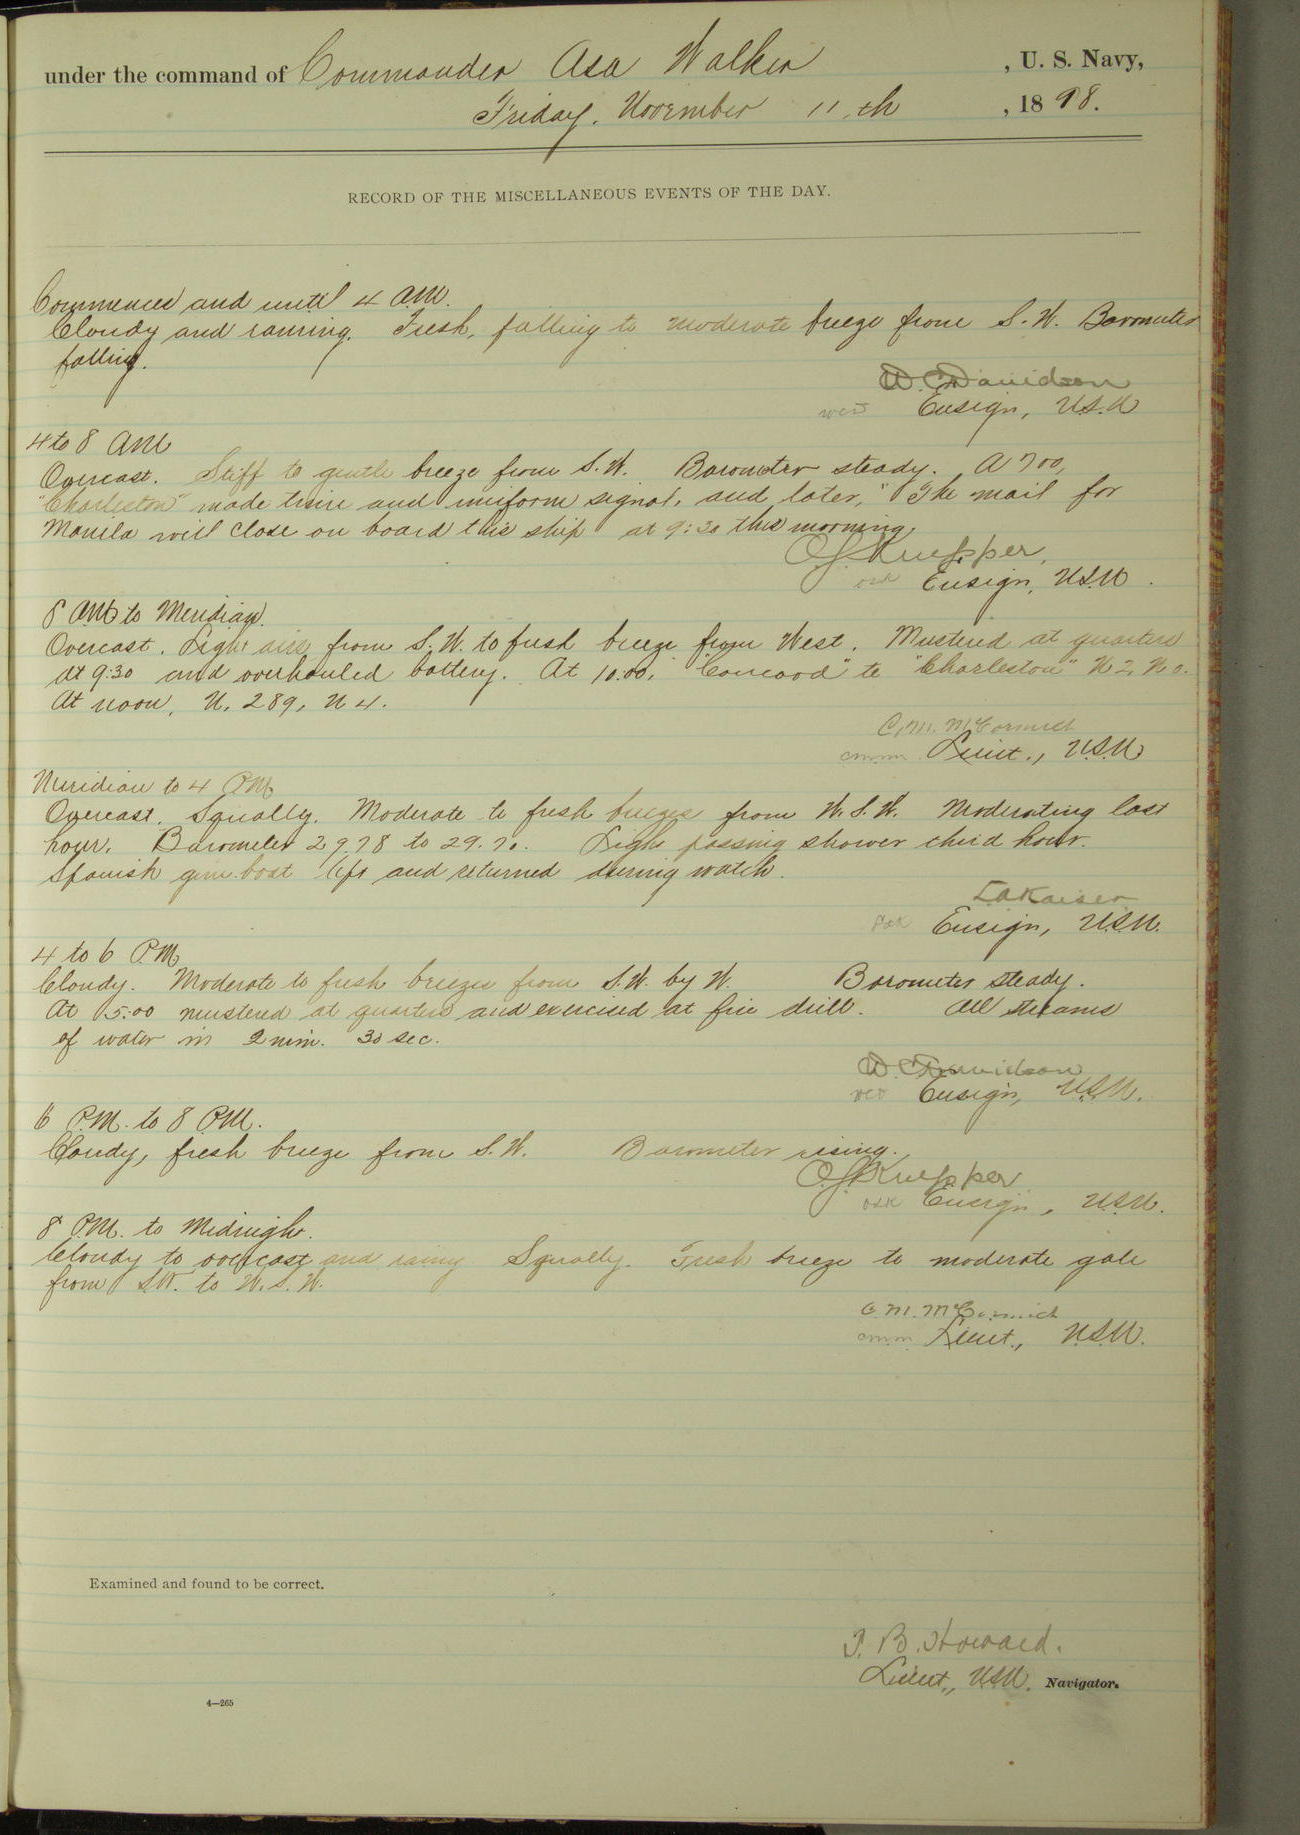 under the command of Commander Asa Walker , U. S. Navy,
Friday, November 11th , 1898.
RECORD OF THE MISCELLANEOUS EVENTS OF THE DAY.
Commences and until 4 A.M.
Cloudy and raining. Fresh, falling to moderate breeze from S.W. Barometer
falling.
W. C. Davidson
Ensign, U.S.N
4 to 8 AM
Overcast. Stiff to gentle breeze from S.W. Barometer steady. A 7 00,
"Charleston" made time and uniform signal, and later, "The mail for
Manila will close on board this ship at 9:30 this morning.
O.S. Knepper,
osk Ensign, U.S.N.
8 AM to Meridian.
Overcast. Light airs from S.W. to fresh breeze from West. Mustered at quarters
at 9:30 and overhauled battery. At 10.00, "Concord" to "Charleston" N 2, N 0.
At noon, N. 289, N 4.
C.M. McCormick
cmm Lieut., U.S.N
Meridian to 4 P.M.
Overcast. Squally. Moderate to fresh breezes from W.S.W. Moderating last
hour. Barometer 29.78 to 29.70. Light passing shower third hour.
Spanish gun-boat left and returned during watch.
L A Kaiser
Ensign, U.S.N.
4 to 6 P.M.
Cloudy. Moderate to fresh breezes from S.W. by W. Barometer steady.
At 5:00 mustered at quarters and exercised at fire drill. All streams
of water in 2 min. 30 sec.
W. C. Davidson
wcd Ensign, U.S.N.
6 P.M. to 8 P.M.
Cloudy, fresh breeze from S.W. Barometer rising.
O.S. Knepper
osk Ensign, U.S.N.
8 P.M. to Midnight.
Cloudy to overcast and rainy Squally. Fresh breeze to moderate gale
from S.W. to W.S.W.
C.M. McCormick
cmm Lieut., U.S.N.
Examined and found to be correct.
T. B. Howard.
Lieut., U.S.N. Navigator.
4—265